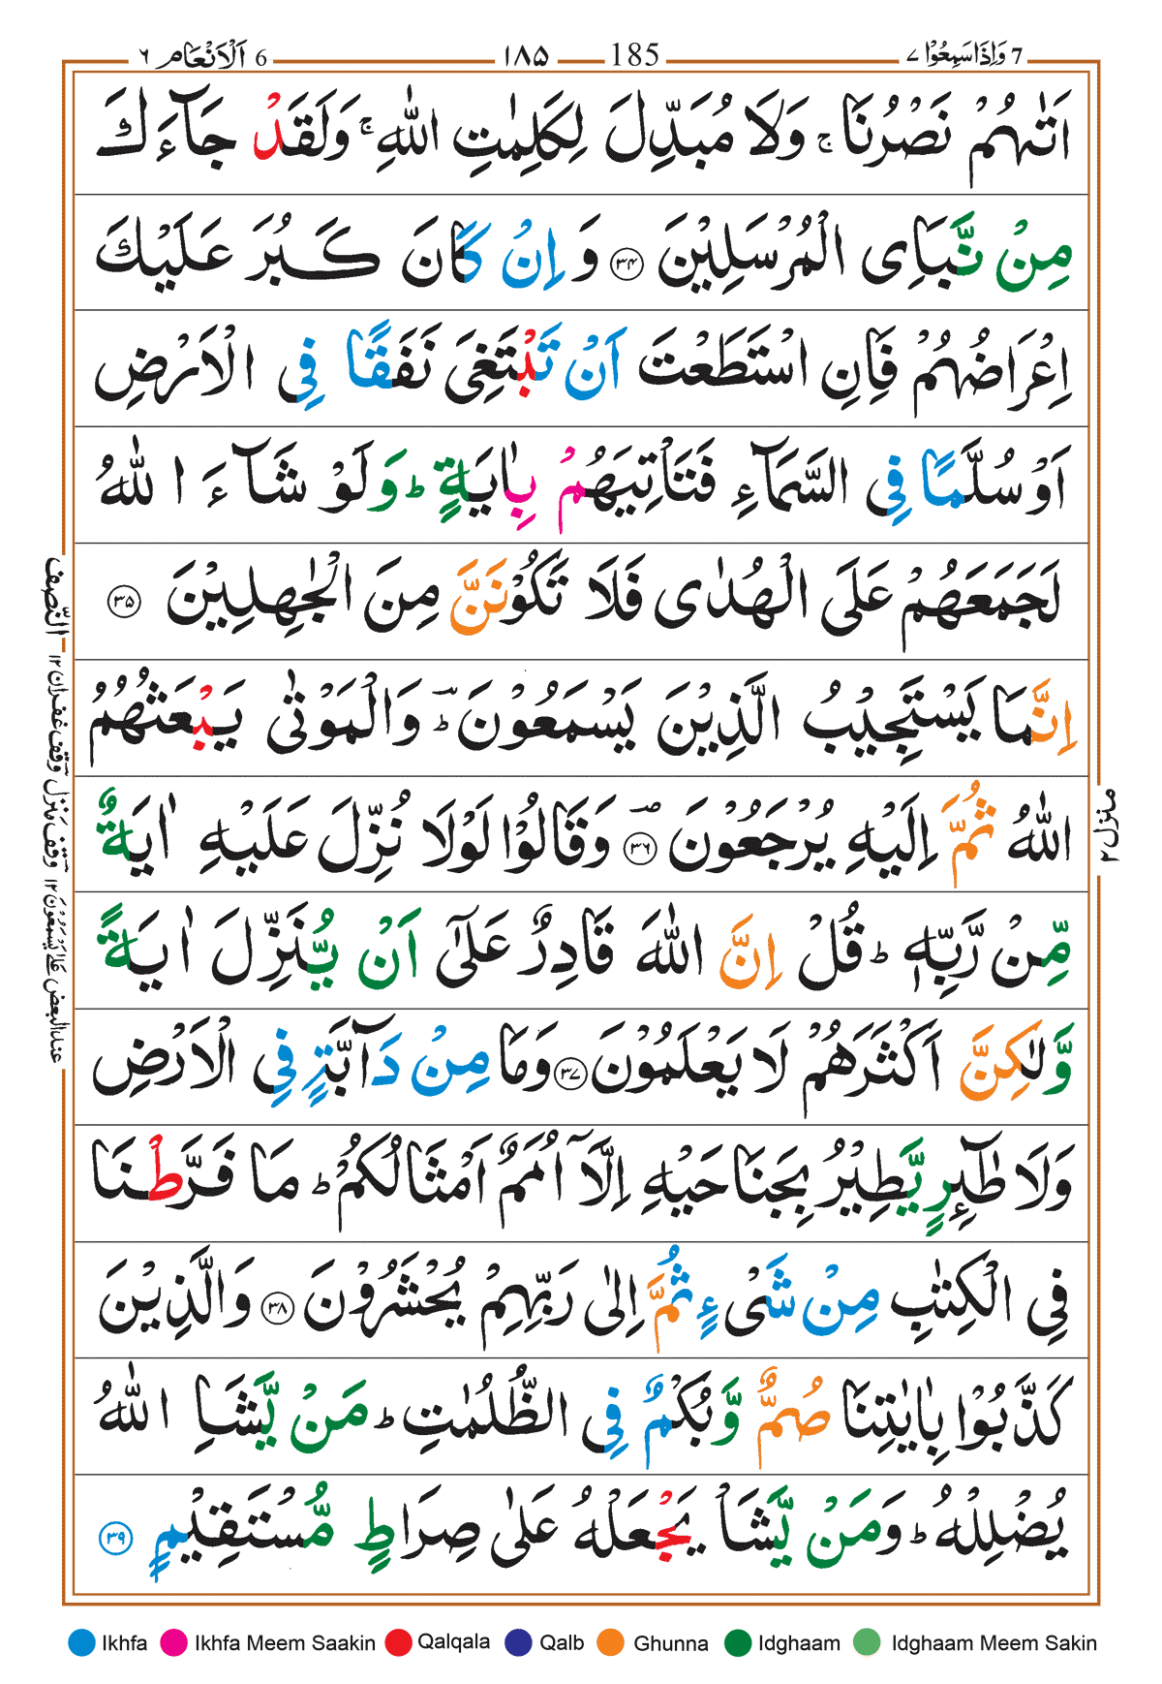 7 وَاِذَاسَمِعُوْا ٧
185 ١٨٥
6 اَلْاَنْعَام ٦
اَتٰىهُمْ نَصْرُنَا ۚ وَلَا مُبَدِّلَ لِكَلِمٰتِ اللّٰهِ ۚ وَلَقَدْ جَآءَكَ
مِنْ نَّبَاِى الْمُرْسَلِيْنَ ۝۳۴ وَاِنْ كَانَ كَبُرَ عَلَيْكَ
اِعْرَاضُهُمْ فَاِنِ اسْتَطَعْتَ اَنْ تَبْتَغِىَ نَفَقًا فِى الْاَرْضِ
اَوْ سُلَّمًا فِى السَّمَآءِ فَتَاْتِيَهُمْ بِاٰيَةٍ ؕ وَلَوْ شَآءَ اللّٰهُ
لَجَمَعَهُمْ عَلَى الْهُدٰى فَلَا تَكُوْنَنَّ مِنَ الْجٰهِلِيْنَ ۝۳۵
اِنَّمَا يَسْتَجِيْبُ الَّذِيْنَ يَسْمَعُوْنَ ؕ وَالْمَوْتٰى يَبْعَثُهُمُ
اللّٰهُ ثُمَّ اِلَيْهِ يُرْجَعُوْنَ ۝۳۶ وَقَالُوْا لَوْلَا نُزِّلَ عَلَيْهِ اٰيَةٌ
مِّنْ رَّبِّهٖ ؕ قُلْ اِنَّ اللّٰهَ قَادِرٌ عَلٰٓى اَنْ يُّنَزِّلَ اٰيَةً
وَّلٰكِنَّ اَكْثَرَهُمْ لَا يَعْلَمُوْنَ ۝۳۷ وَمَا مِنْ دَآبَّةٍ فِى الْاَرْضِ
وَلَا طٰٓٮِٕرٍ يَّطِيْرُ بِجَنَاحَيْهِ اِلَّاۤ اُمَمٌ اَمْثَالُكُمْ ؕ مَا فَرَّطْنَا
فِى الْكِتٰبِ مِنْ شَىْءٍ ثُمَّ اِلٰى رَبِّهِمْ يُحْشَرُوْنَ ۝۳۸ وَالَّذِيْنَ
كَذَّبُوْا بِاٰيٰتِنَا صُمٌّ وَّبُكْمٌ فِى الظُّلُمٰتِ ؕ مَنْ يَّشَاِ اللّٰهُ
يُضْلِلْهُ ؕ وَمَنْ يَّشَاْ يَجْعَلْهُ عَلٰى صِرَاطٍ مُّسْتَقِيْمٍ ۝۳۹
النِّصف
وقف غفران ١٢ وقف منزل
عند البعض علٰی يسمعون ١٢
منزل ٢
Ikhfa Ikhfa Meem Saakin Qalqala Qalb Ghunna Idghaam Idghaam Meem Sakin